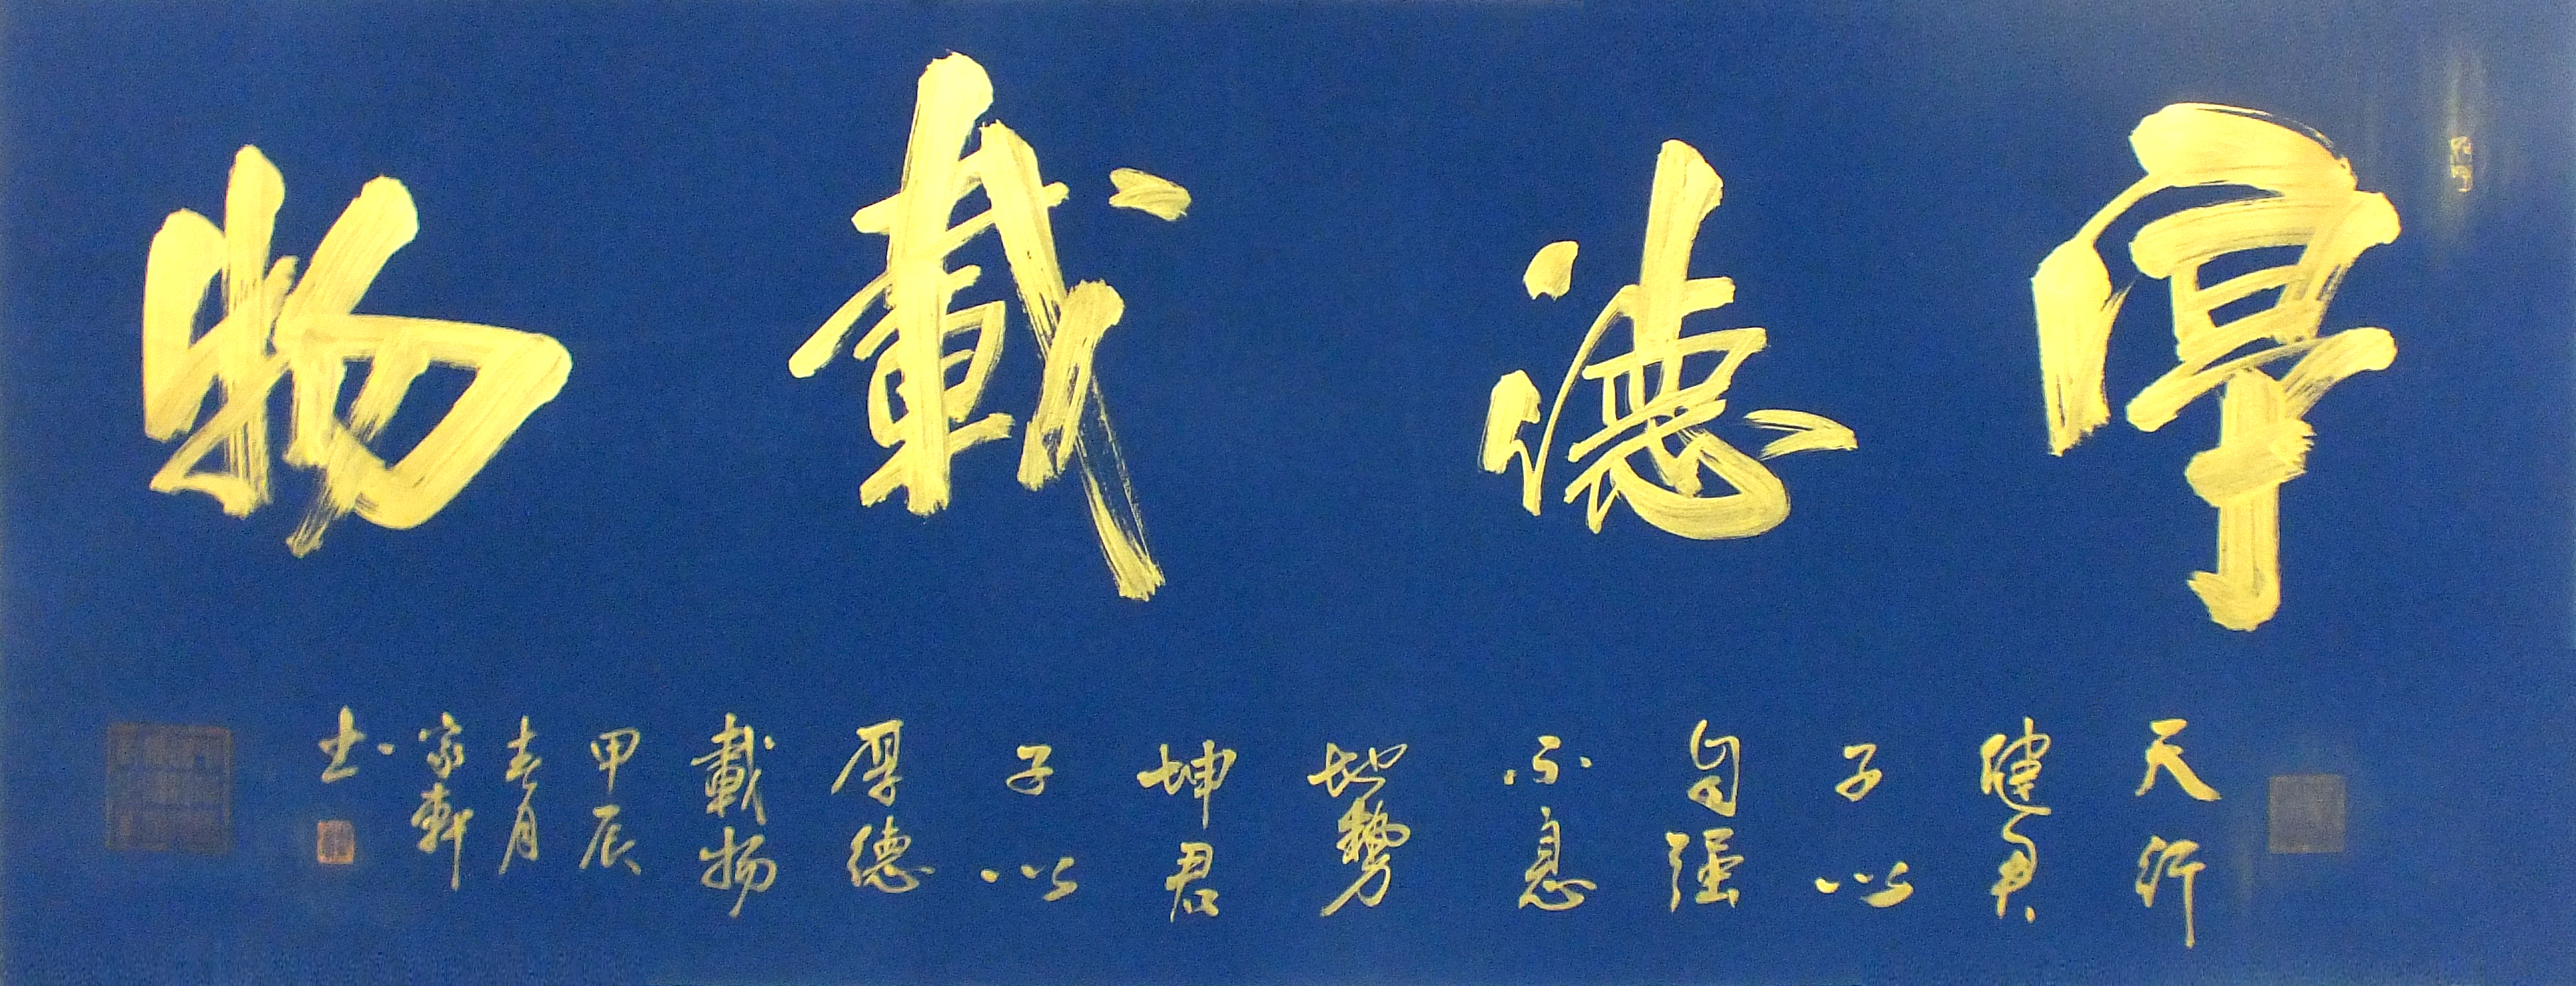 厚德載物
天行
健君
子以
自强
不息
地勢
坤君
子以
厚德
載物
甲辰
春月
家軒
书